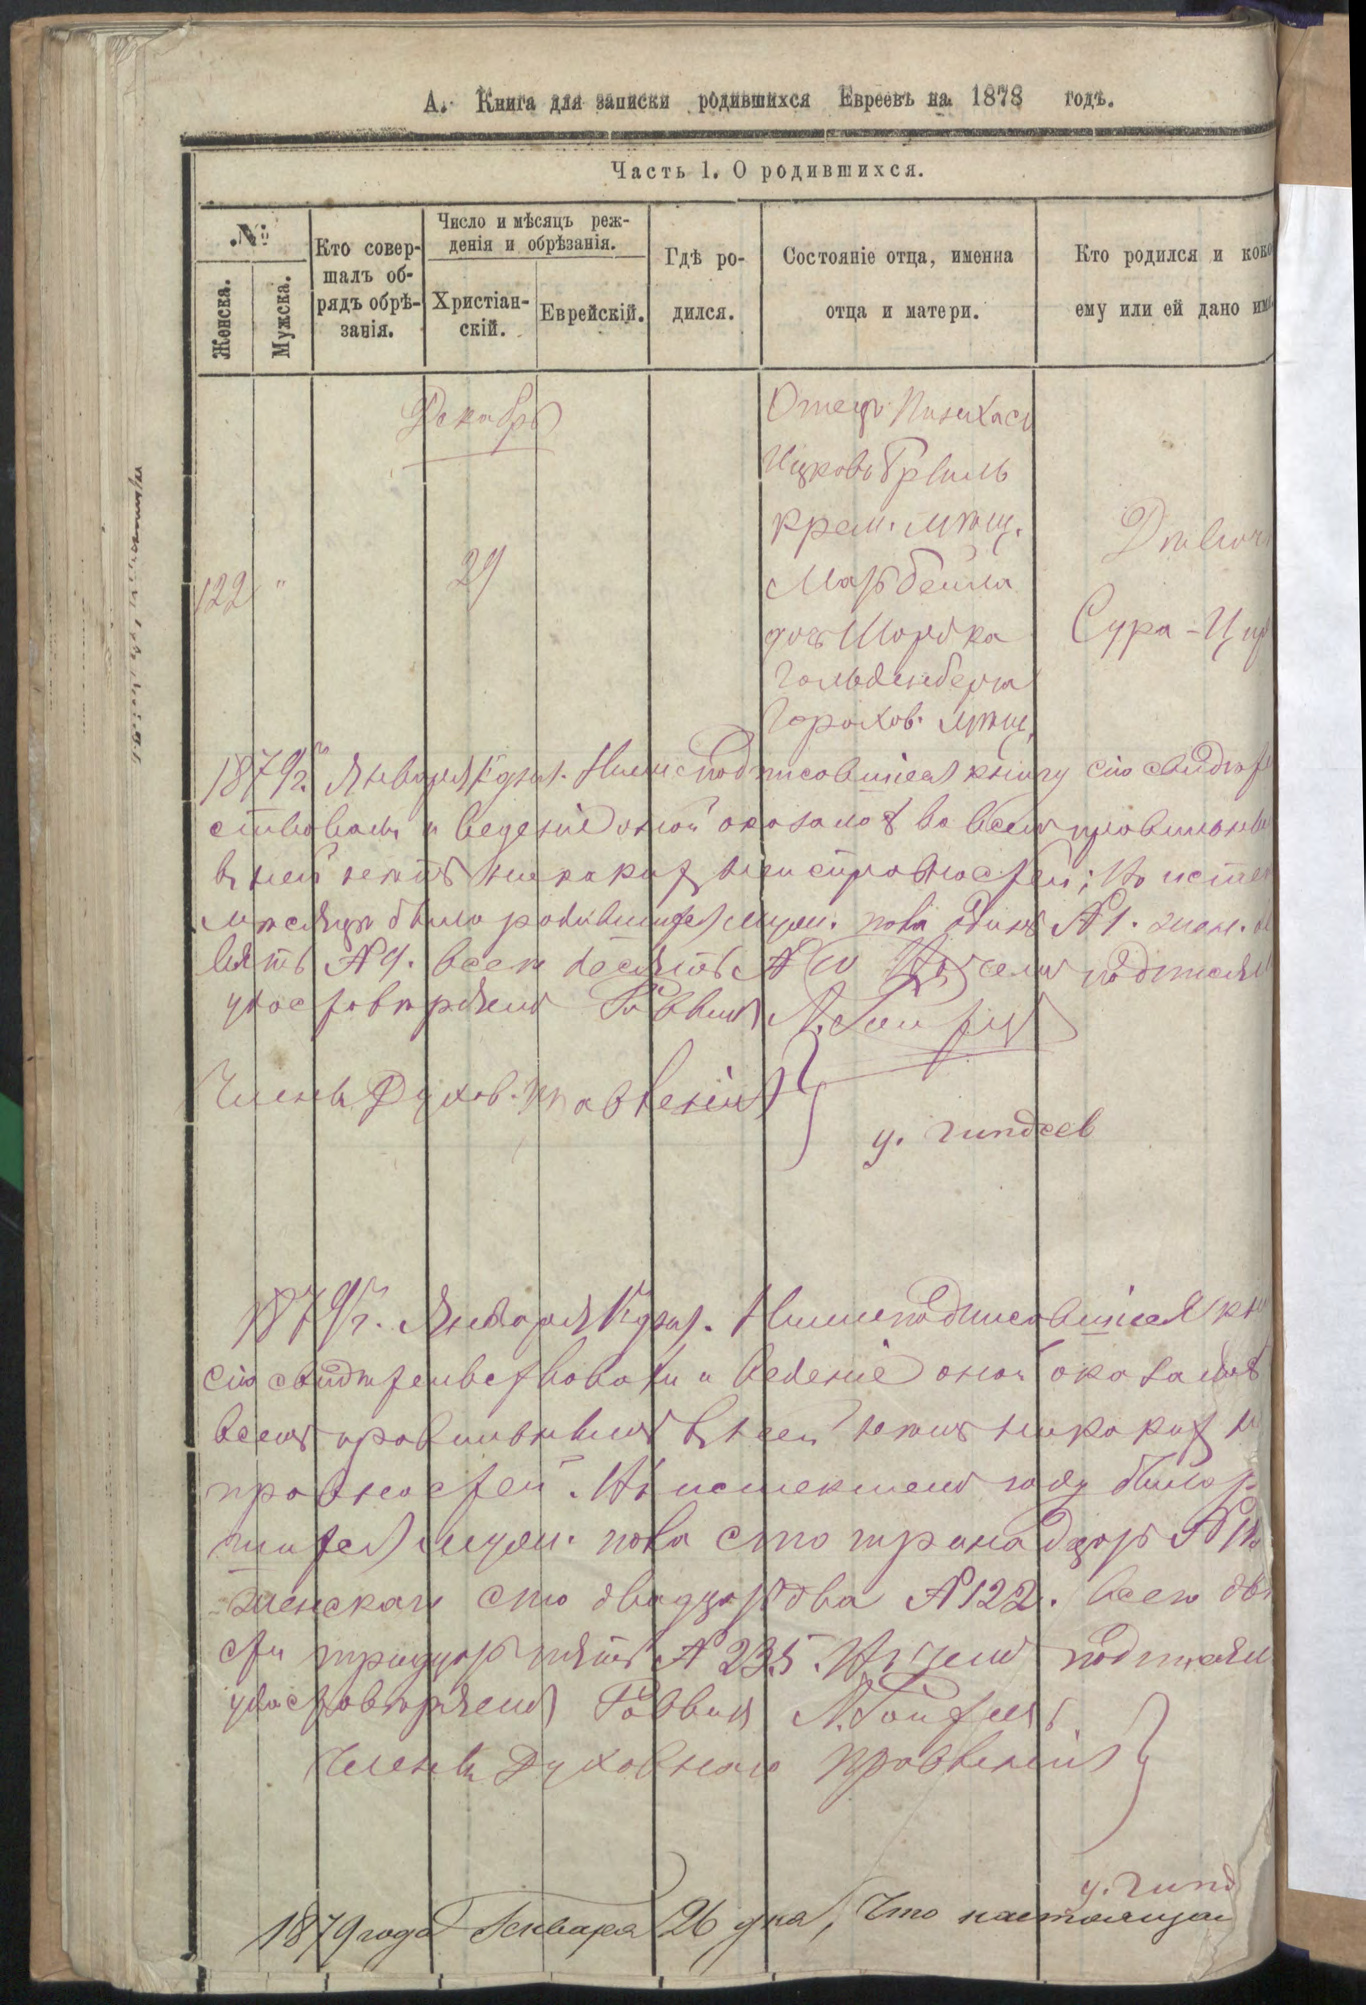 А. Книга для записки родившихся Евреевъ на 1878 годъ.
Часть 1. О родившихся.
№
Женска.
Мужска.
Кто совер-
шалъ об-
рядъ обрѣ-
занія.
Число и мѣсяцъ реж-
денія и обрѣзанія.
Христіан-
скій.
Еврейскій.
Гдѣ ро-
дился.
Состояніе отца, именна
отца и матери.
Кто родился и како
ему или ей дано имя
Декабрь
122 "
29
Отецъ Пинхасъ
Ицковъ
Крем. мѣщ.
Мать Бейла
дочь Шорка
Гольденберга
Горохов. мѣщ.
Дѣвоч
Сура-Ци
1879 г. Января дня. Нижеподписавшіеся книгу сію свидѣте
ствовали и веденіе оной оказалось во всемъ правильны
въ ней нетъ никакихъ неисправностей; Въ истек
мѣсяцѣ было родившихся муж. пола одинъ № 1. жен. де
вять № 9. всего десять № 10 въ чемъ подписям
удостовѣряемъ Раввинъ
Члены Духов. Правленія
1879 г. Января дня. Нижеподписавшіеся кн
сію свидѣтельствовали и веденіе оной оказалось
всемъ правильнымъ въ ней нетъ никакихъ н
правностей. Въ истекшемъ году было р
шихся муж. пола сто тринадцать № 11
женскаго сто двадцать два № 122. всего дв
сти тридцать пять № 235. Въ чемъ подписям
удостовѣряемъ Раввинъ
Члены Духовнаго Правленія
1879 года Января 26 дня, Что настоящая